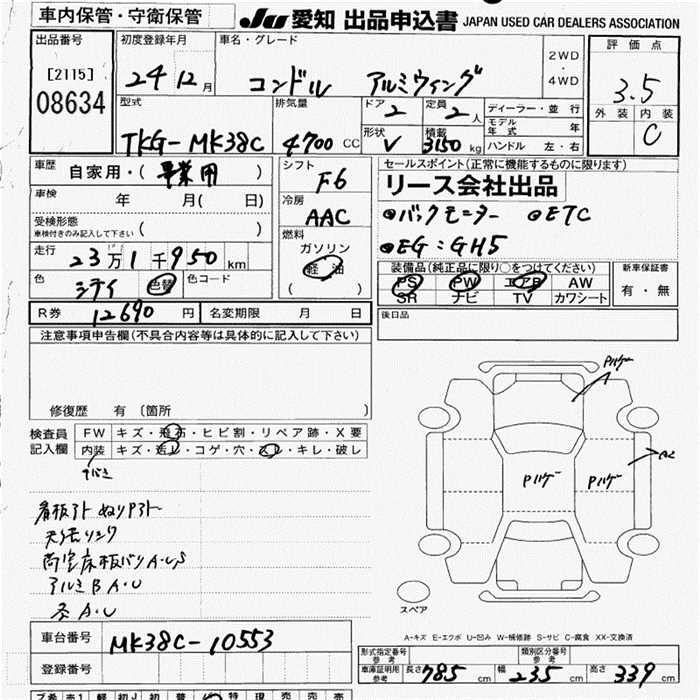 車内保管・守衛保管
JU 愛知 出品申込書 JAPAN USED CAR DEALERS ASSOCIATION
出品番号
[2115]
08634
初度登録年月
24年12月
車名・グレード
コンドル アルミウィング
2WD
4WD
評価点
3.5
外装 内装
C
型式
TKG-MK38C
排気量
4700 CC
ドア
2
定員
2人
形状
V
積載
3150 kg
ディーラー・並行
モデル年式 年
ハンドル 左・右
車歴
自家用・(事業用)
車検
年 月( 日)
受検形態
車検付きのみ記入して下さい ( )
走行
23万1千950 km
色
シテイ
色替
色コード
シフト
F6
冷房
AAC
燃料
ガソリン
軽油
( )
セールスポイント(正常に機能するものに限ります)
リース会社出品
●バックモニター ●ETC
●EG:GH5
装備品(純正品に限り○をつけてください)
PS PW エアB AW
SR ナビ TV カワシート
新車保証書
有・無
後日品
R券 12690円
名変期限 月 日
注意事項申告欄(不具合内容等は具体的に記入して下さい)
修復歴 有 〔箇所 〕
検査員記入欄
FW キズ・飛石・ヒビ割・リペア跡・X要
内装 キズ・汚レ・コゲ・穴・スレ・キレ・破レ
看板アト ぬりアト
荷室床板バリA・US
アルミBA・U
A・U
Pハゲ
Pハゲ
Pハゲ
A2
スペア
A-キズ E-エクボ U-凹み W-補修跡 S-サビ C-腐食 XX-交換済
車台番号
MK38C-10553
登録番号
形式指定番号 参考
類別区分番号 参考
車庫証明用 参考 長さ 785 cm 幅 235 cm 高さ 339 cm